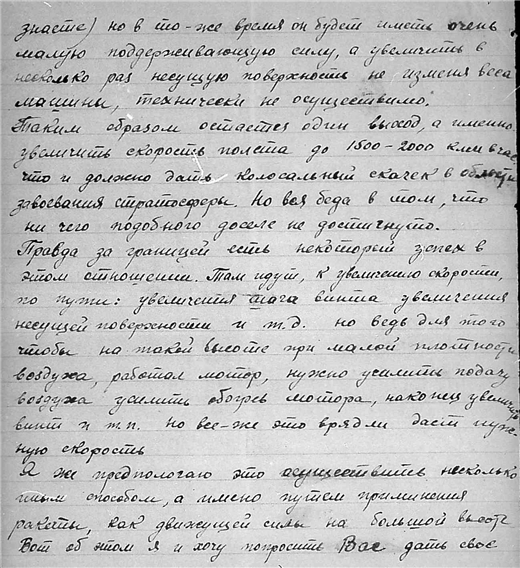 знаете) но в то-же время он будет иметь очень
малую поддерживающую силу, а увеличить в
несколько раз несущую поверхность не изменя веса
машины, технически не осуществимо.
Таким образом остается один выход, а именно
увеличить скорость полета до 1500-2000 клм в час
что и должно дать колосальный скачек в области
завоевания стратосферы. Но вся беда в том, что
ни чего подобного доселе не достигнуто.
Правда за границей есть некоторый успех в
этом отношении. Там идут, к увеличению скорости,
по пути: увеличения шага винта увеличения
несущей поверхности и т.д. но ведь для того
чтобы на такой высоте при малой плотности
воздуха, работал мотор, нужно усилить подачу
воздуха усилить обогрев мотора, наконец увеличить
винт и т.п. но все-же это врядли даст нуж-
ную скорость
Я же предпологаю это осуществить несколько
иным способом, а имено путем применения
ракеты, как движущей силы на большой высоте
Вот об этом я и хочу попросить Вас дать свое